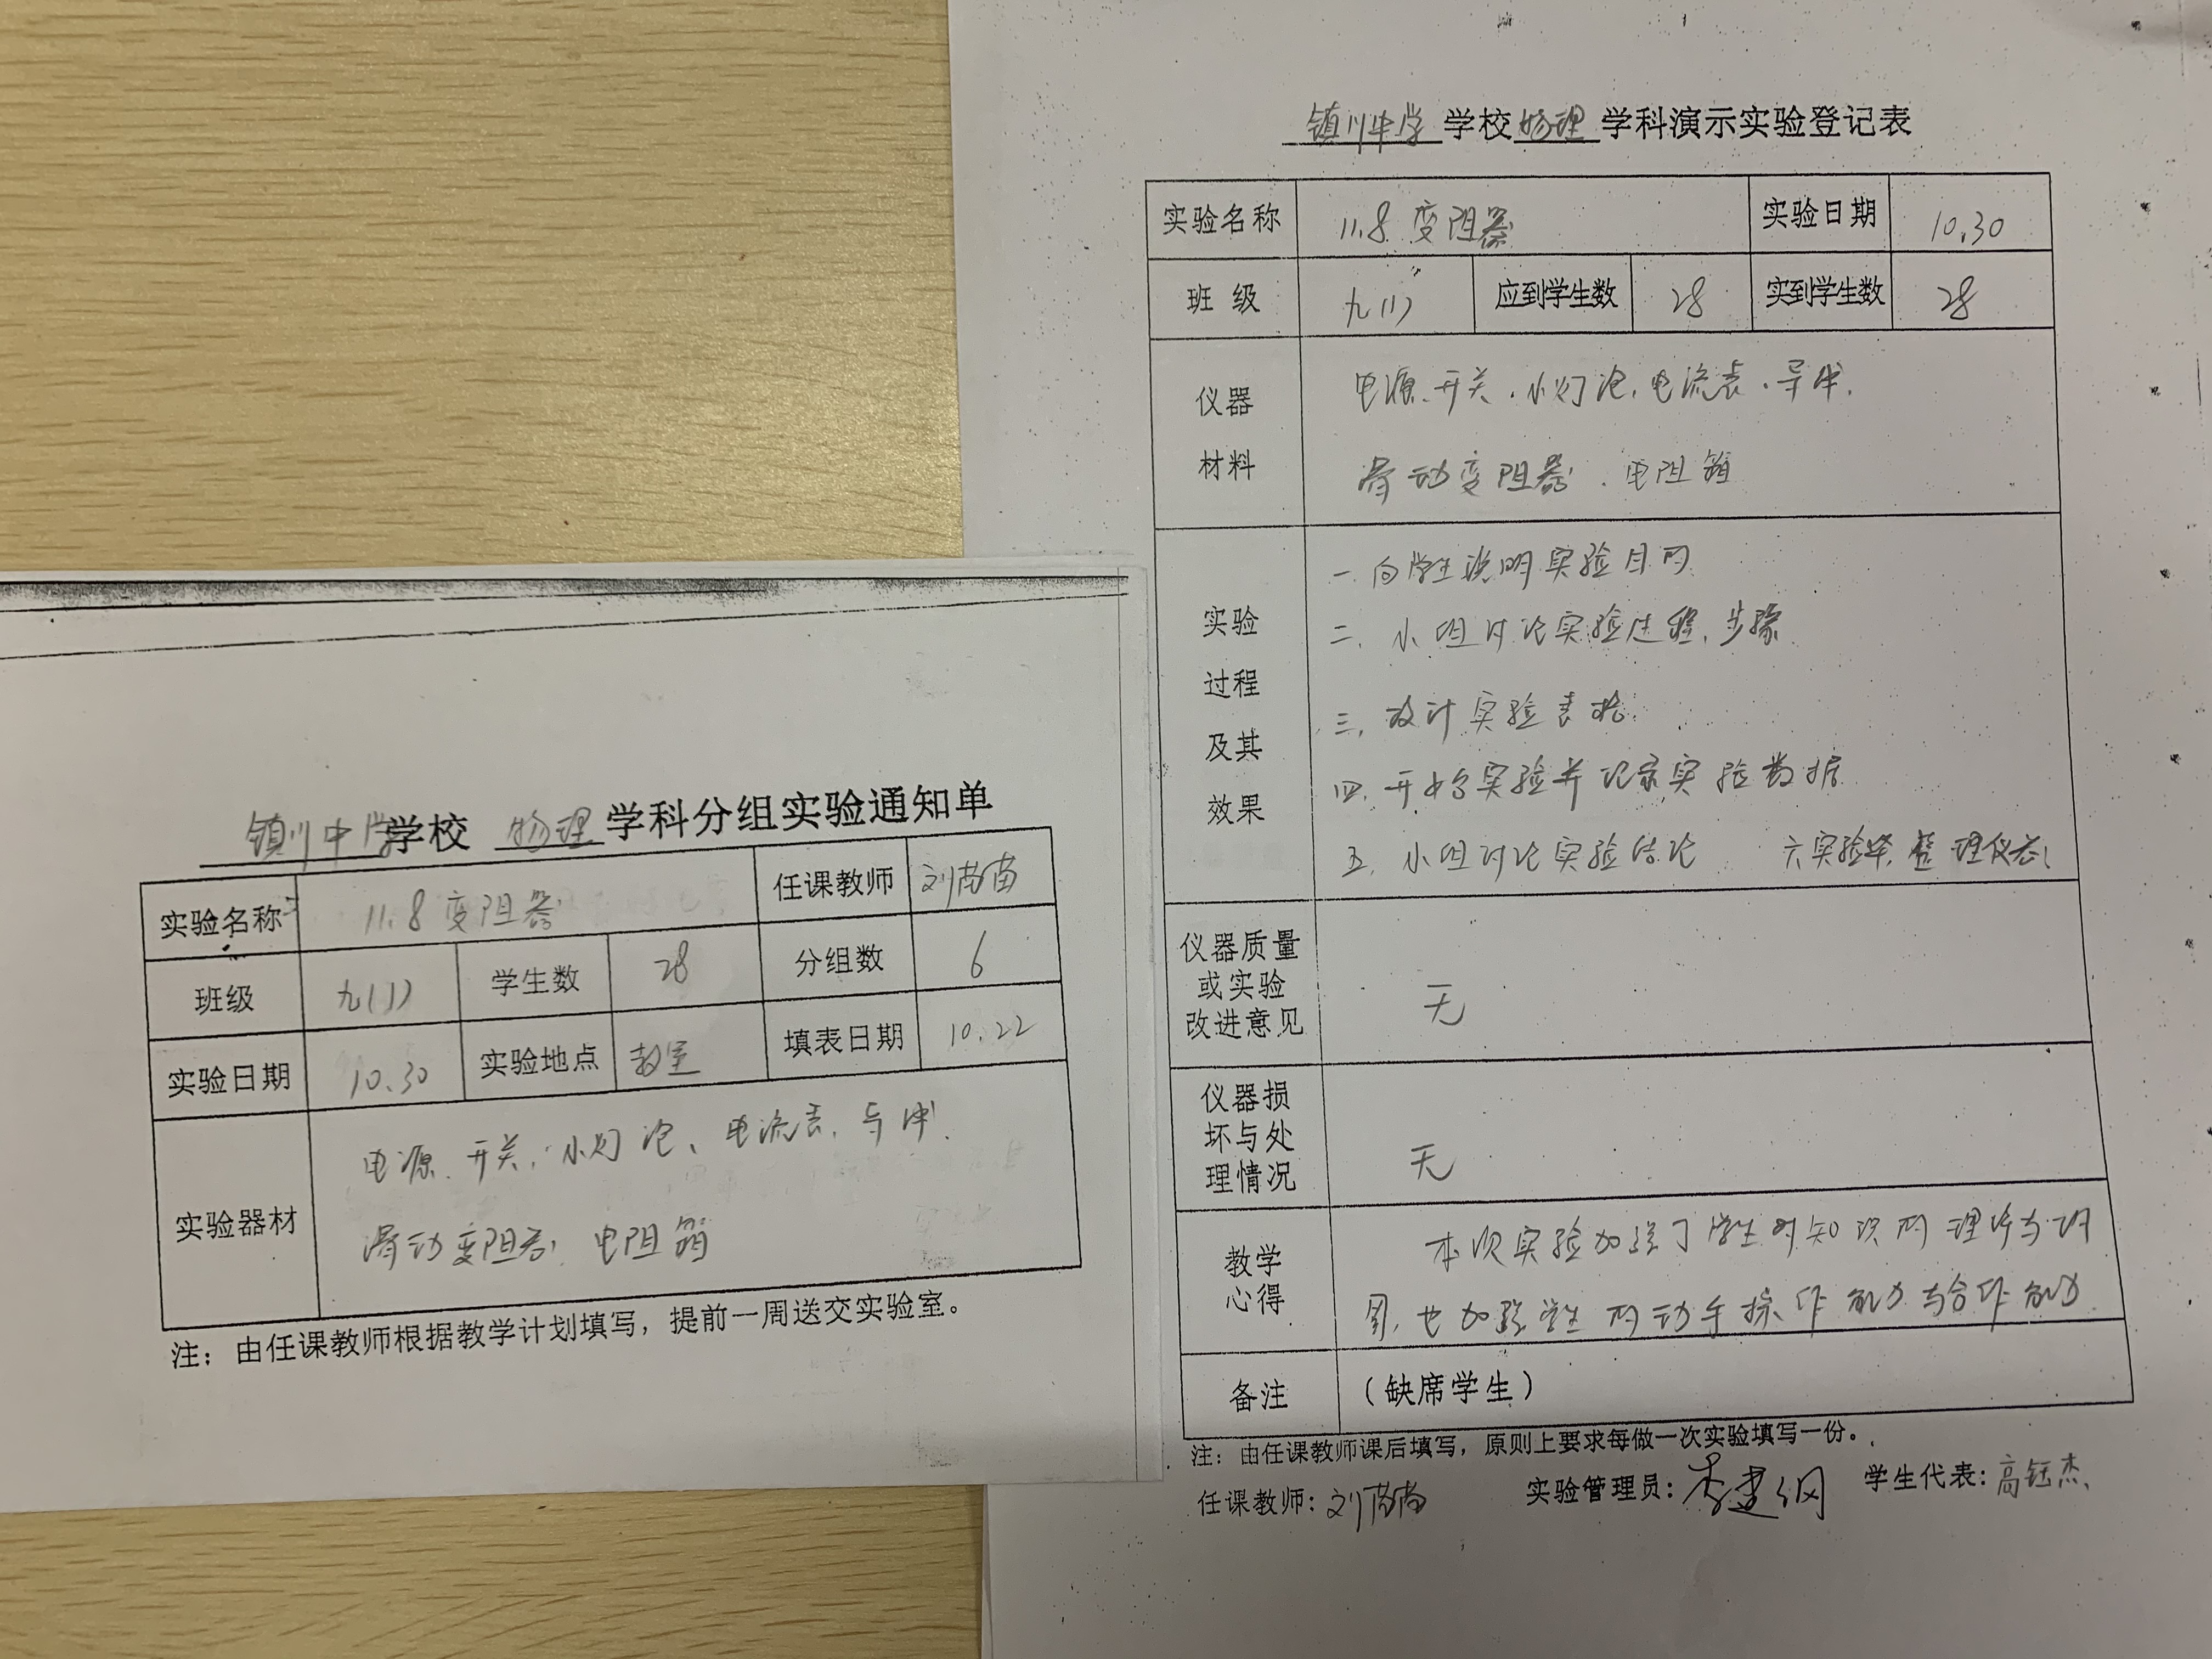 镇川中学学校 物理 学科分组实验通知单
实验名称 11.8 变阻器 任课教师 刘苗苗
班级 九(1) 学生数 28 分组数 6
实验日期 10.30 实验地点 教室 填表日期 10.22
实验器材
电源、开关、小灯泡、电流表、导体、
滑动变阻器、电阻箱
注：由任课教师根据教学计划填写，提前一周送交实验室。
镇川中学 学校 物理 学科演示实验登记表
实验名称 11.8 变阻器 实验日期 10.30
班 级 九(1) 应到学生数 28 实到学生数 28
仪器
材料
电源、开关、小灯泡、电流表、导体、
滑动变阻器、电阻箱
实验
过程
及其
效果
一、向学生说明实验目的
二、小组讨论实验过程、步骤
三、设计实验表格
四、开始实验并记录实验数据
五、小组讨论实验结论 六、实验毕，整理仪器
仪器质量
或实验
改进意见
无
仪器损
坏与处
理情况
无
教学
心得
本次实验加强了学生对知识的理
也加强学生的动手操作能力与合作能力
备注 （缺席学生）
注：由任课教师课后填写，原则上要求每做一次实验填写一份。
任课教师：刘苗苗 实验管理员：李建纲 学生代表：高钰杰